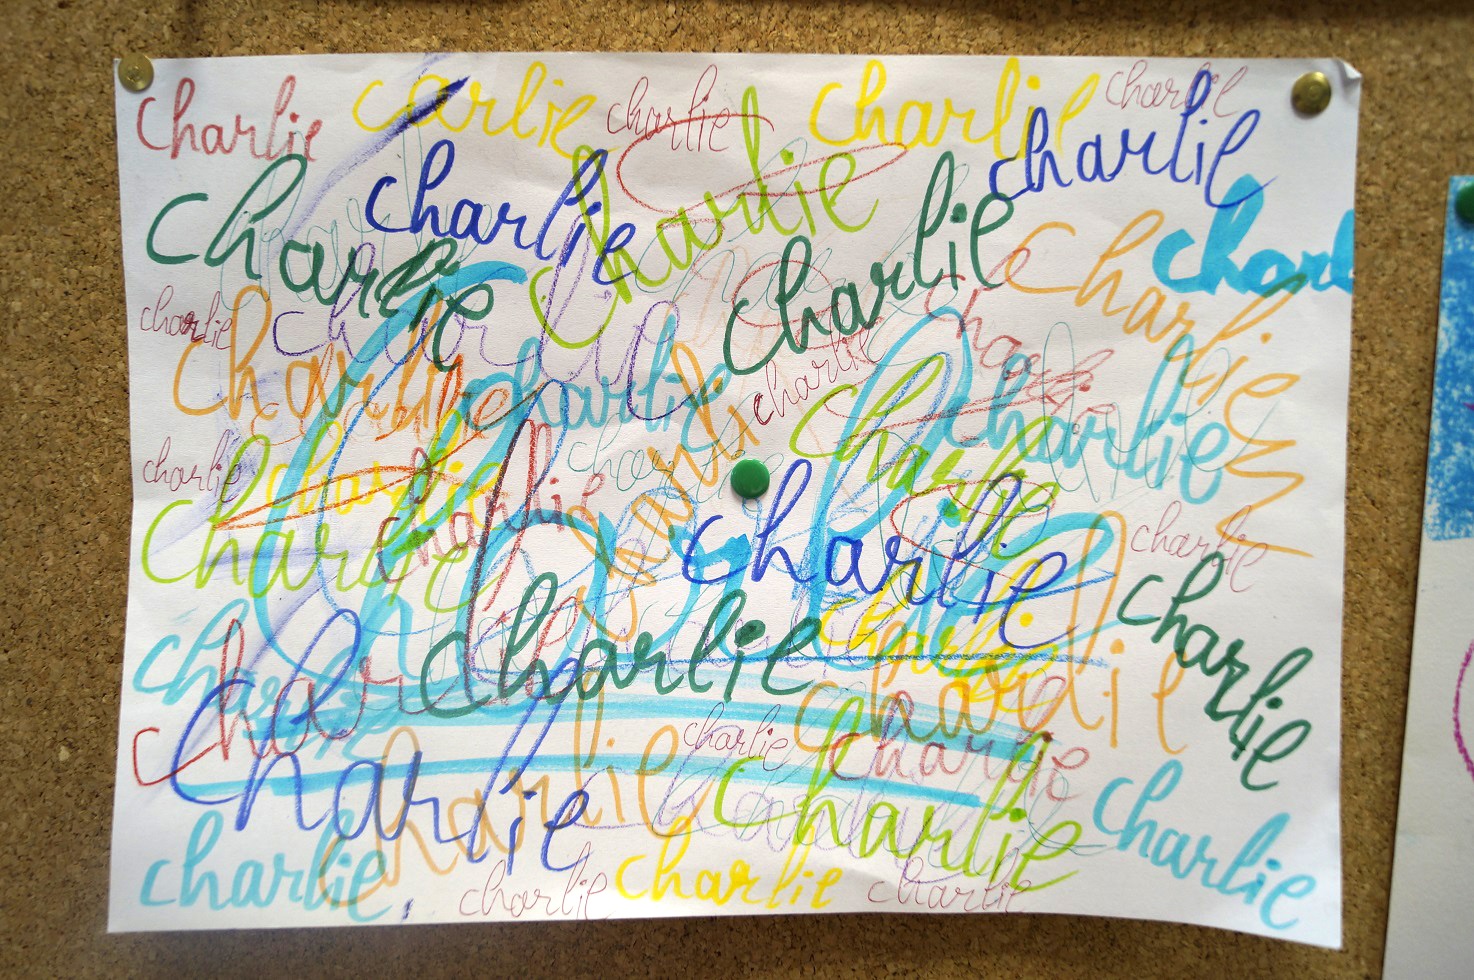 charlie carlie charlie charlie charlie
charlie charlie charlie charlie
charlie charlie charlie charl
charlie charlie
charlie charlie charlie charlie
charlie charlie charlie
charlie charlie charlie charlie
charlie charlie charlie charlie
charlie charlie charlie
charlie charlie charlie
charlie charlie charlie charlie
charlie charlie charlie charlie
charlie charlie charlie charlie